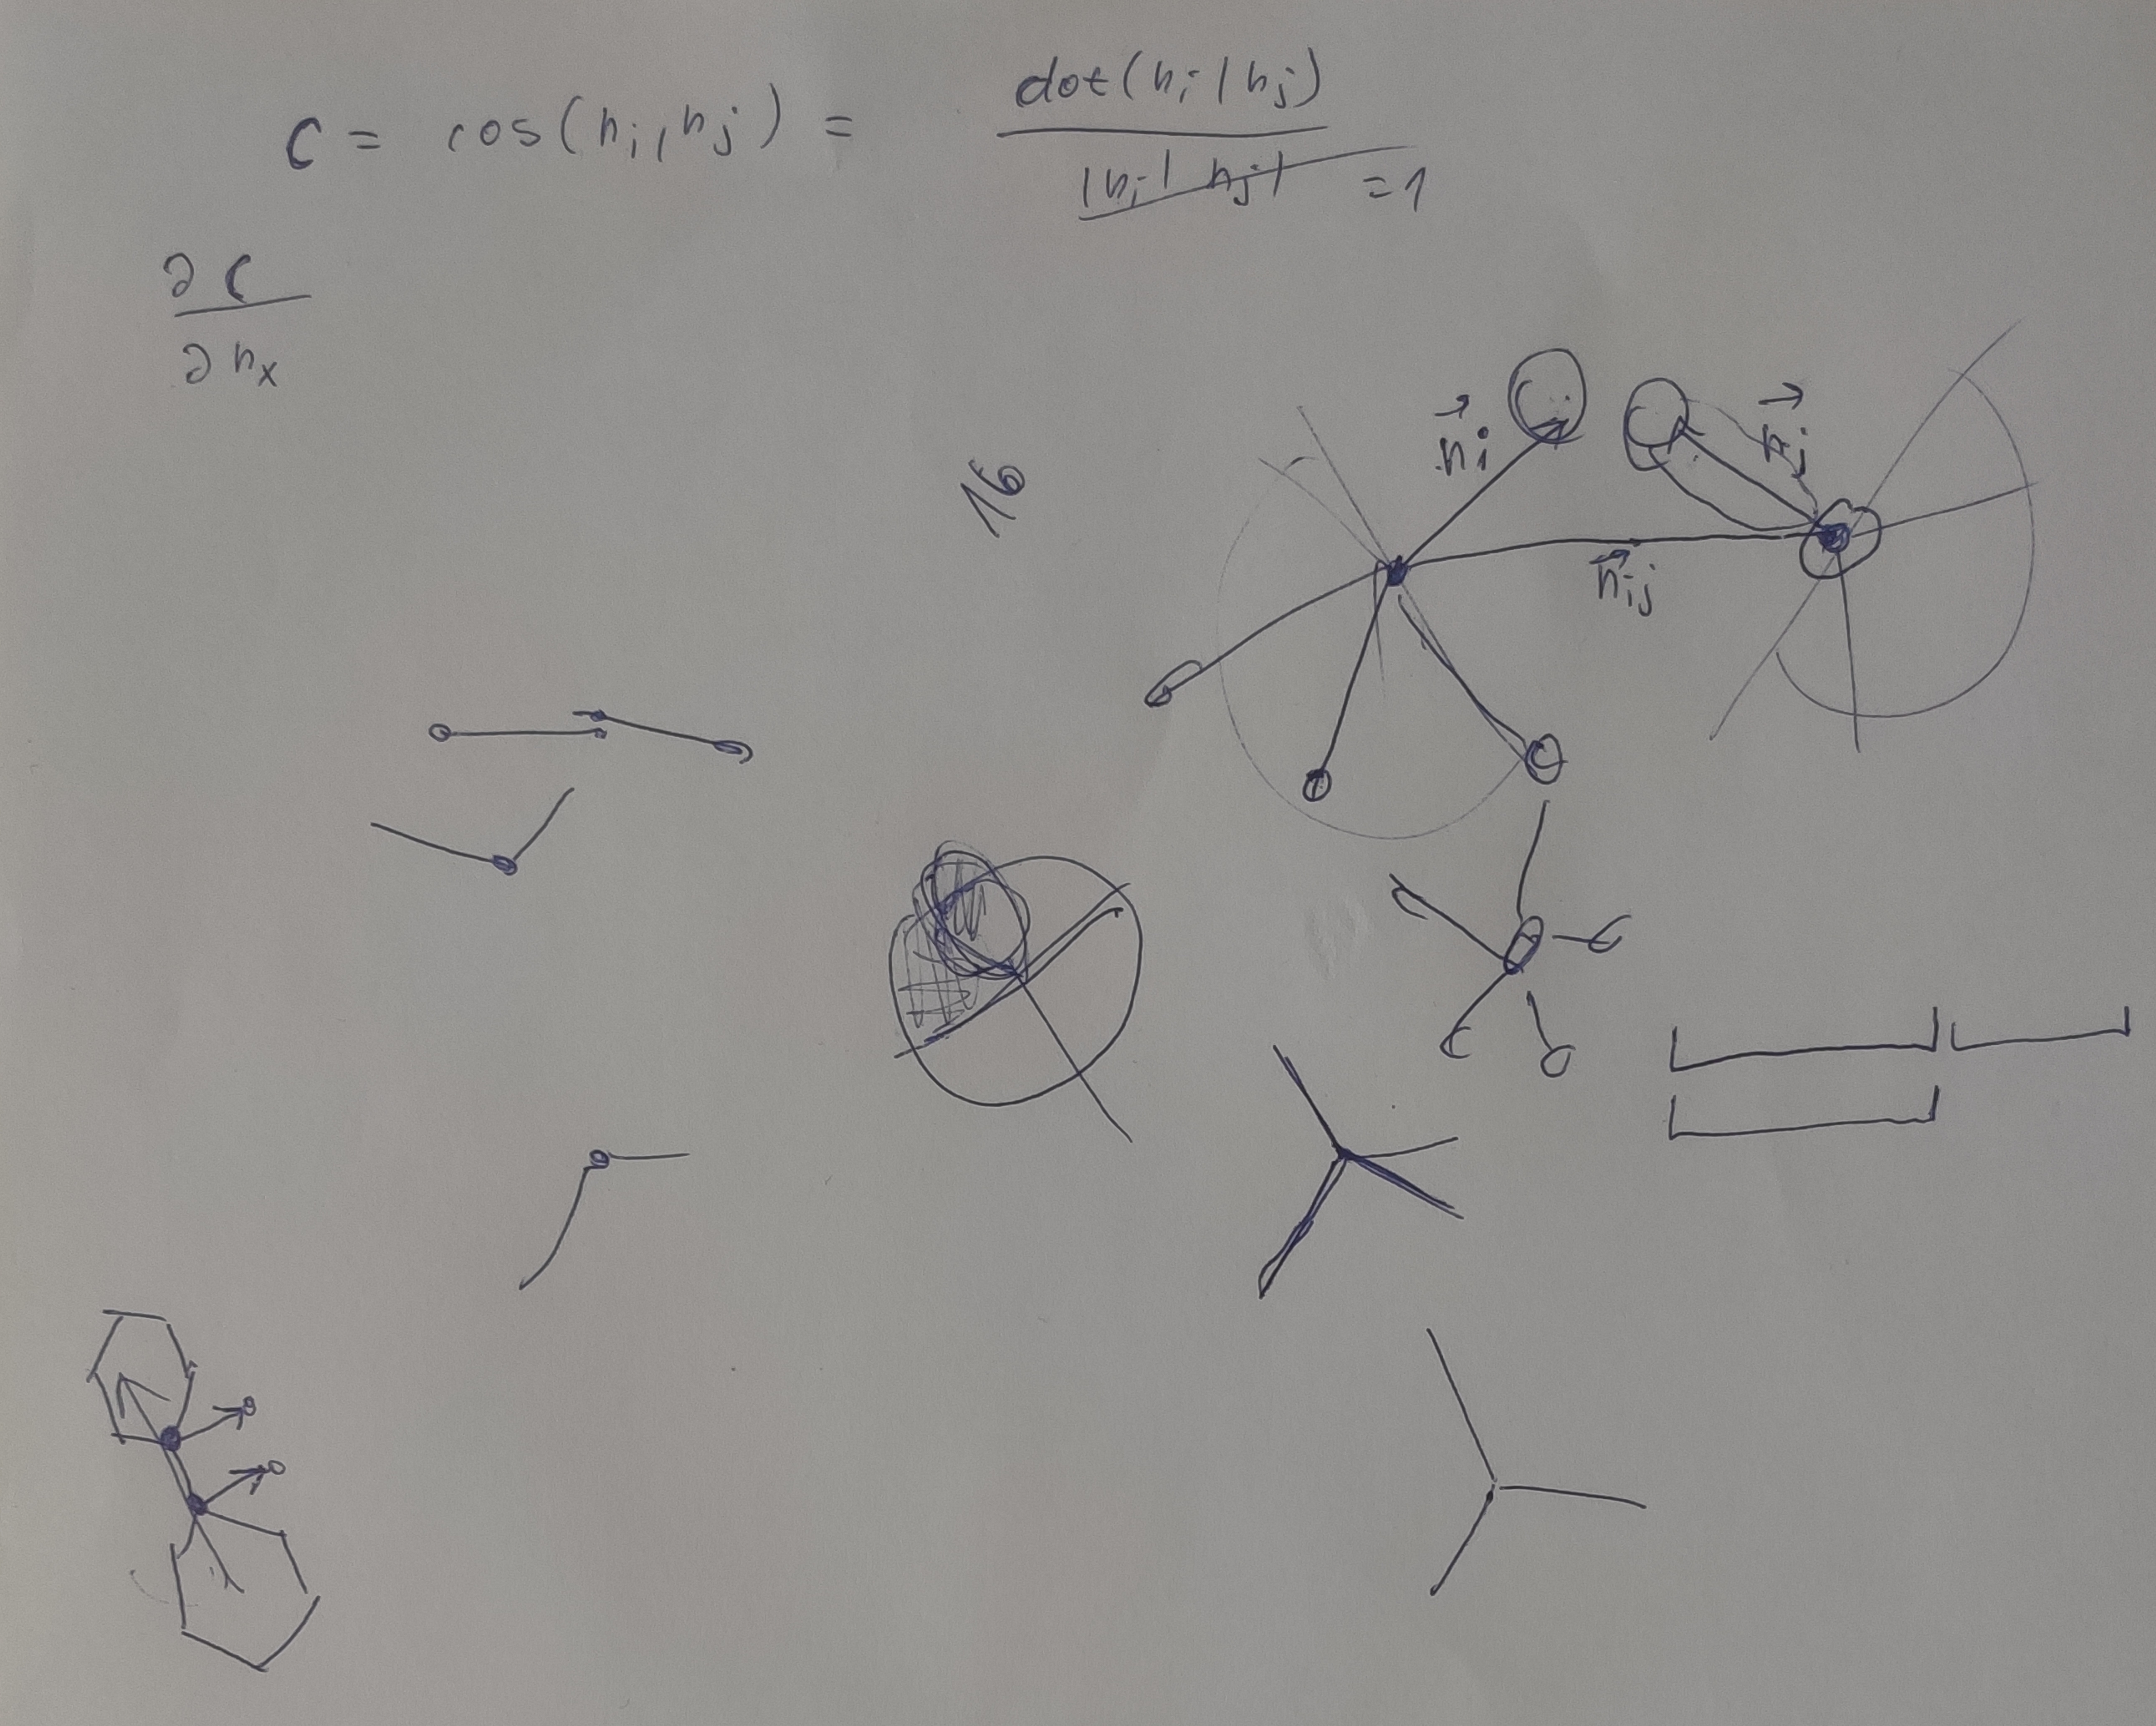 C = cos(n_i, n_j) = dot(n_i | n_j) / |n_i| |n_j| = 1
∂C / ∂n_x
n⃗_i
n⃗_j
16
n⃗_ij